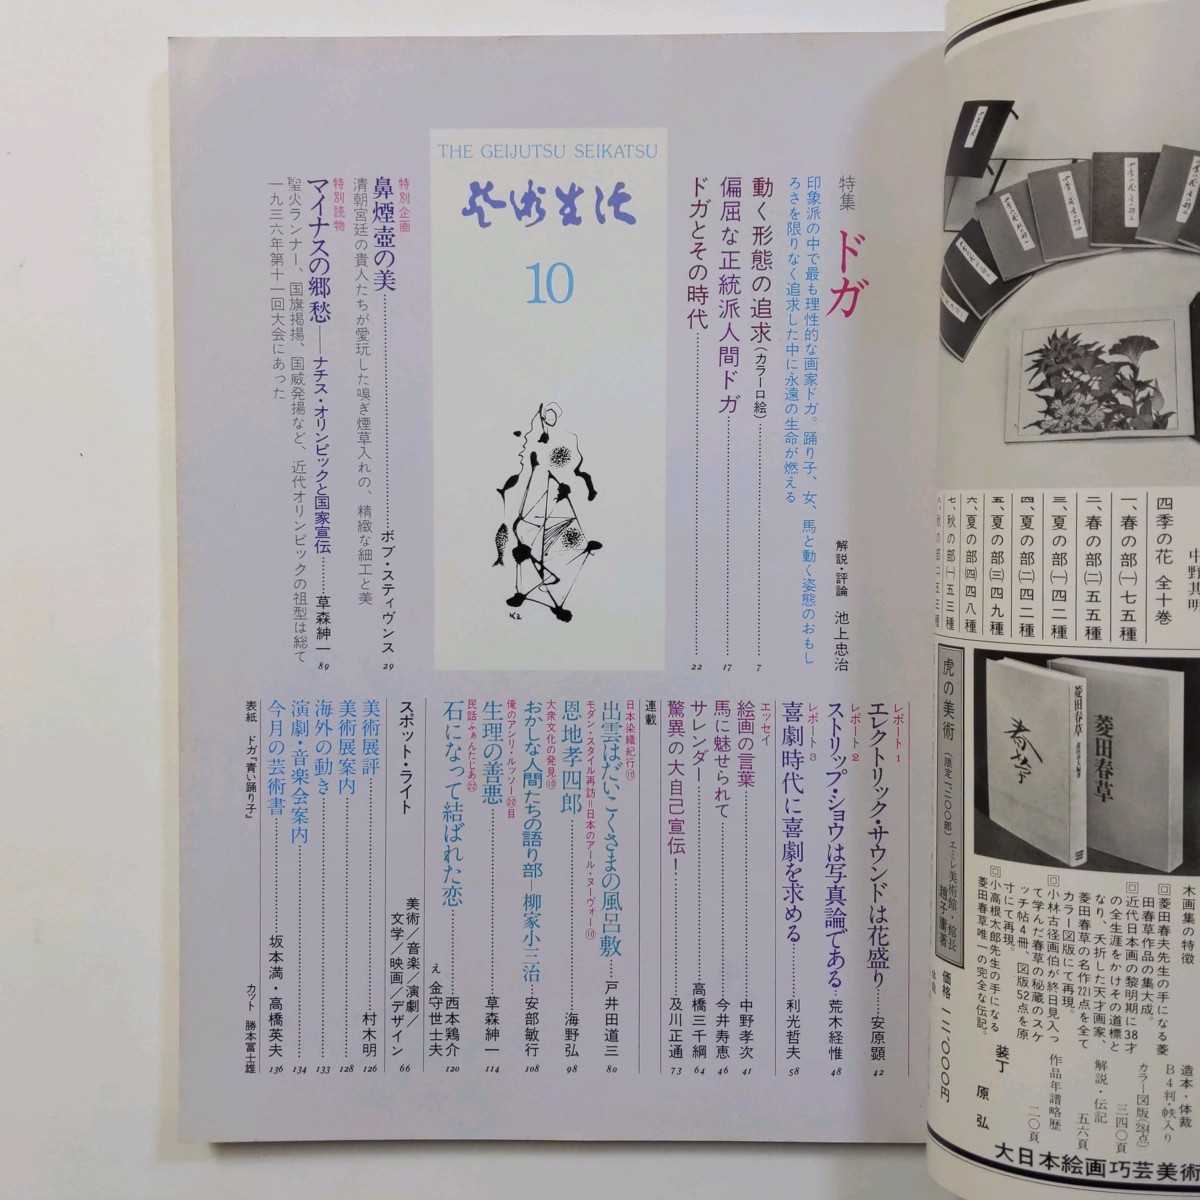 THE GEIJUTSU SEIKATSU
芸術生活
10
特集 ドガ
印象派の中で最も理性的な画家ドガ。踊り子、女、馬と動く姿態のおもし
ろさを限りなく追求した中に永遠の生命が燃える
解説・評論 池上忠治
動く形態の追求(カラー口絵)……7
偏屈な正統派人間ドガ……17
ドガとその時代……22
特別企画
鼻煙壺の美……ボブ・スティヴンス 29
清朝宮廷の貴人たちが愛玩した嗅ぎ煙草入れの、精緻な細工と美
特別読物
マイナスの郷愁——ナチス・オリンピックと国家宣伝……草森紳一 89
聖火ランナー、国旗掲揚、国威発揚など、近代オリンピックの祖型は総て
一九三六年第十一回大会にあった
レポート1
エレクトリック・サウンドは花盛り……安原顕 42
レポート2
ストリップ・ショウは写真論である……荒木経惟 48
レポート3
喜劇時代に喜劇を求める……利光哲夫 58
エッセイ
絵画の言葉……中野孝次 41
馬に魅せられて……今井寿恵 46
サレンダー……高橋三千綱 64
驚異の大自己宣伝!……及川正通 73
連載
日本染織紀行⑩
出雲はだいこくさまの風呂敷……戸井田道三 80
モダン・スタイル再訪=日本のアール・ヌーヴォー⑩
恩地孝四郎……海野弘 98
大衆文化の発見⑩
おかしな人間たちの語り部—柳家小三治……安部敏行 108
俺のアンリ・ルッソー㉒回目
生理の善悪……草森紳一 114
民話ふぁんたじあ㉒
石になって結ばれた恋……西本鶏介 120
え 金守世士夫
スポット・ライト
美術/音楽/演劇/
文学/映画/デザイン 66
美術展評……村木明 126
美術展案内……128
海外の動き……133
演劇・音楽会案内……134
今月の芸術書……坂本満・高橋英夫 136
表紙 ドガ「青い踊り子」
カット 勝本冨士雄
中野其明
四季の花 全十巻
一、春の部(一)七五種
二、春の部(二)五五種
三、夏の部(一)四二種
四、夏の部(二)四二種
五、夏の部(三)四九種
六、夏の部(四)四八種
七、秋の部(一)五三種
菱田春草
春草
虎の美術(限定一、二〇〇部)エミレ美術館・館長 趙子庸著 価格 一二、〇〇〇円
木画集の特徴
回菱田春夫先生の手になる菱
田春草作品の集大成。
回近代日本画の黎明期に38才
の全生涯をかけその道標と
なり、夭折した天才画家、
菱田春草の名作22点を全て
カラー図版にて再現。
回小林古径画伯が終日見入っ
て学んだ春草の秘蔵のスケ
ッチ帖4冊、図版52点を原
寸にて再現。
回小高根太郎先生の手になる
菱田春草唯一の完全な伝記。
造本・体裁
B4判・帙入り
カラー図版(284点)
三四〇頁
解説・伝記
五六頁
作品年譜略歴
二〇頁
装丁 原弘
大日本絵画巧芸美術